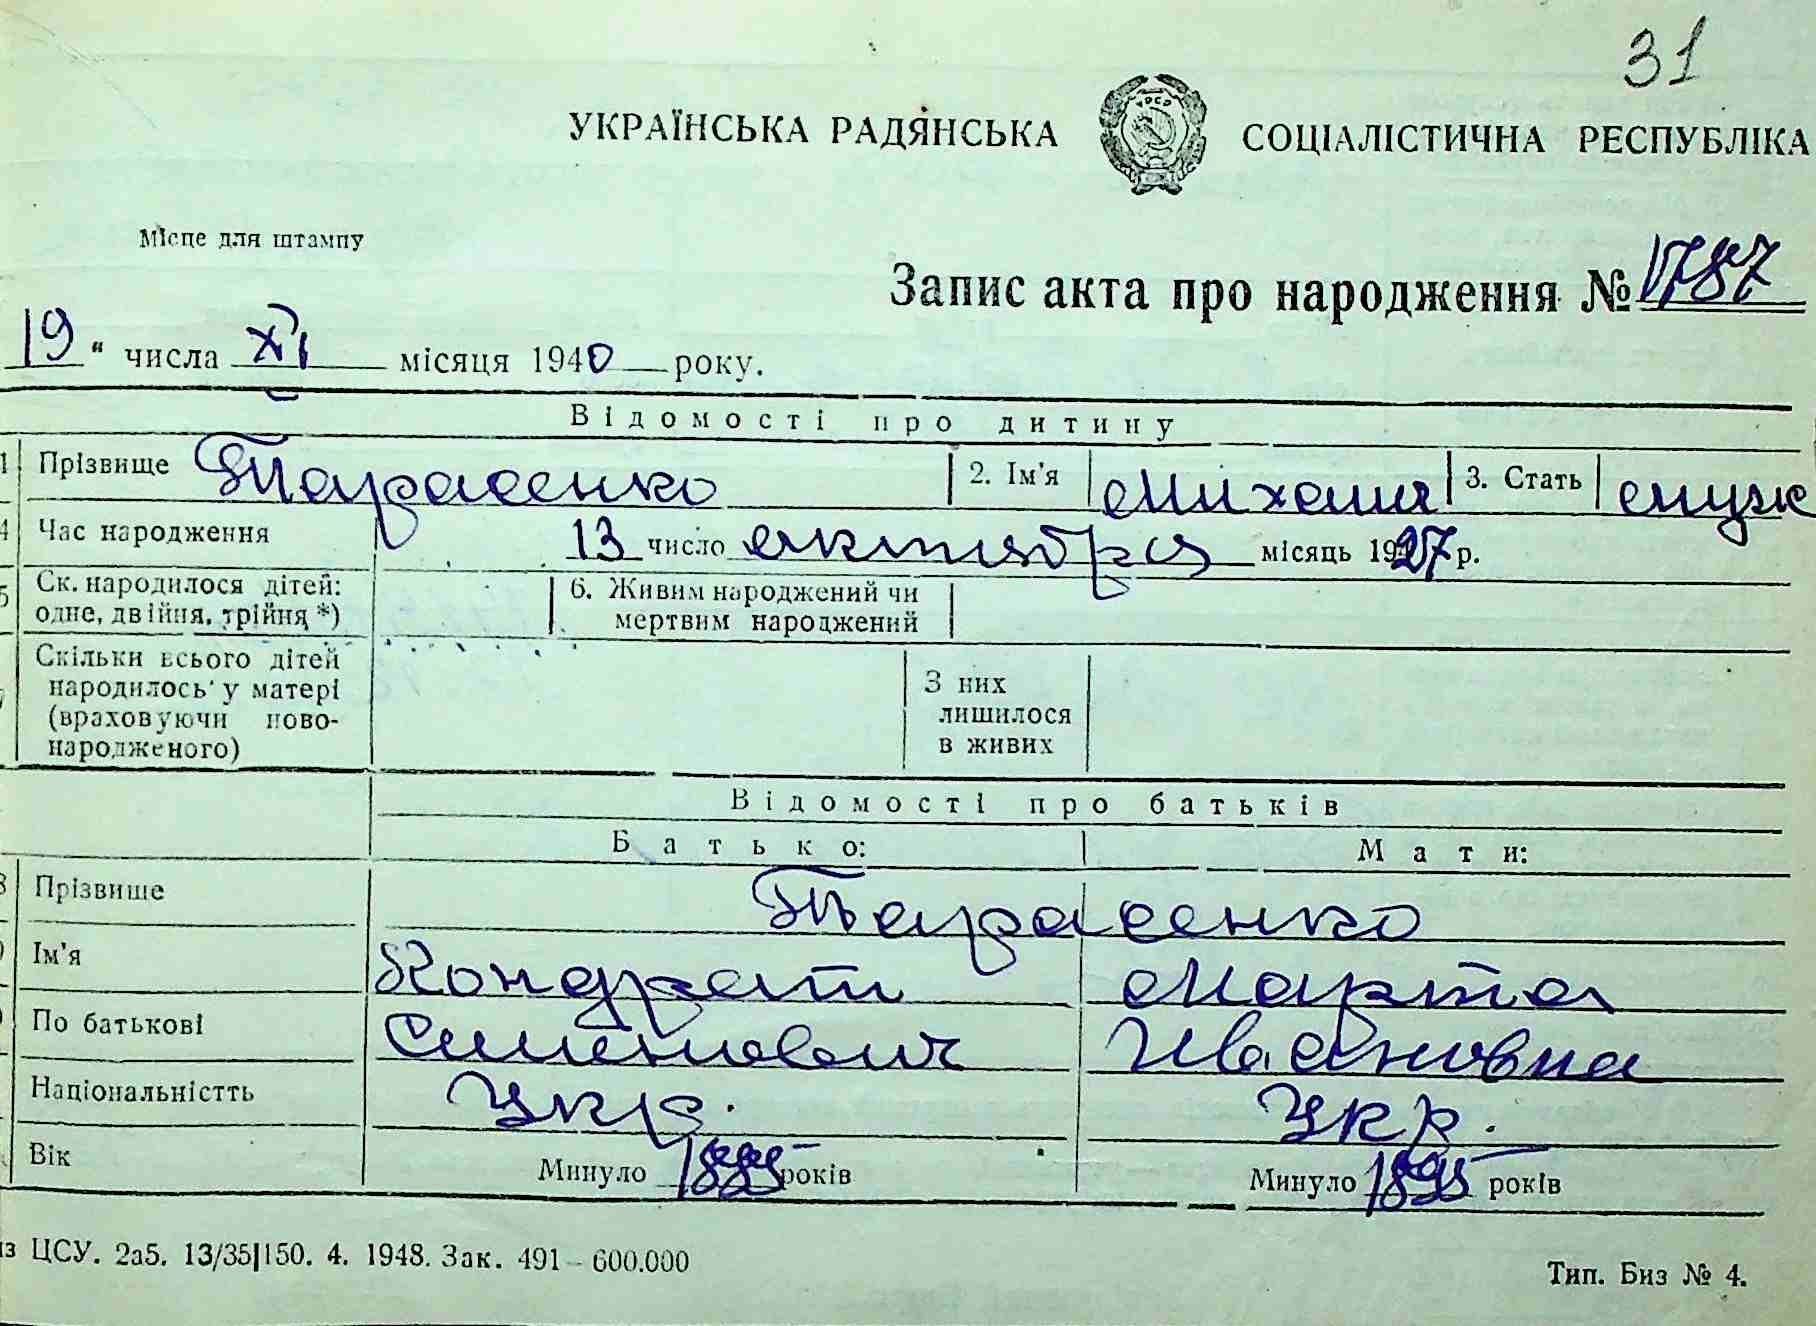 31
УКРАЇНСЬКА РАДЯНСЬКА СОЦІАЛІСТИЧНА РЕСПУБЛІКА
УРСР
Місце для штампу
Запис акта про народження № 1787
19 " числа XI місяця 1940 року.
Відомості про дитину
1 Прізвище Тарасенко 2. Ім'я Михаил 3. Стать муж
4 Час народження 13 число октября місяць 1927 р.
5 Ск. народилося дітей: одне, двійня, трійня *) 6. Живим народжений чи мертвим народжений
Скільки всього дітей народилось у матері (враховуючи новонародженого) З них лишилося в живих
Відомості про батьків
Батько: Мати:
8 Прізвище Тарасенко
Ім'я Кондрат Марта
По батькові Семенович Ивановна
Національністть Укр. Укр.
Вік Минуло 1885 років Минуло 1895 років
из ЦСУ. 2а5. 13/35|150. 4. 1948. Зак. 491 - 600.000
Тип. Биз № 4.